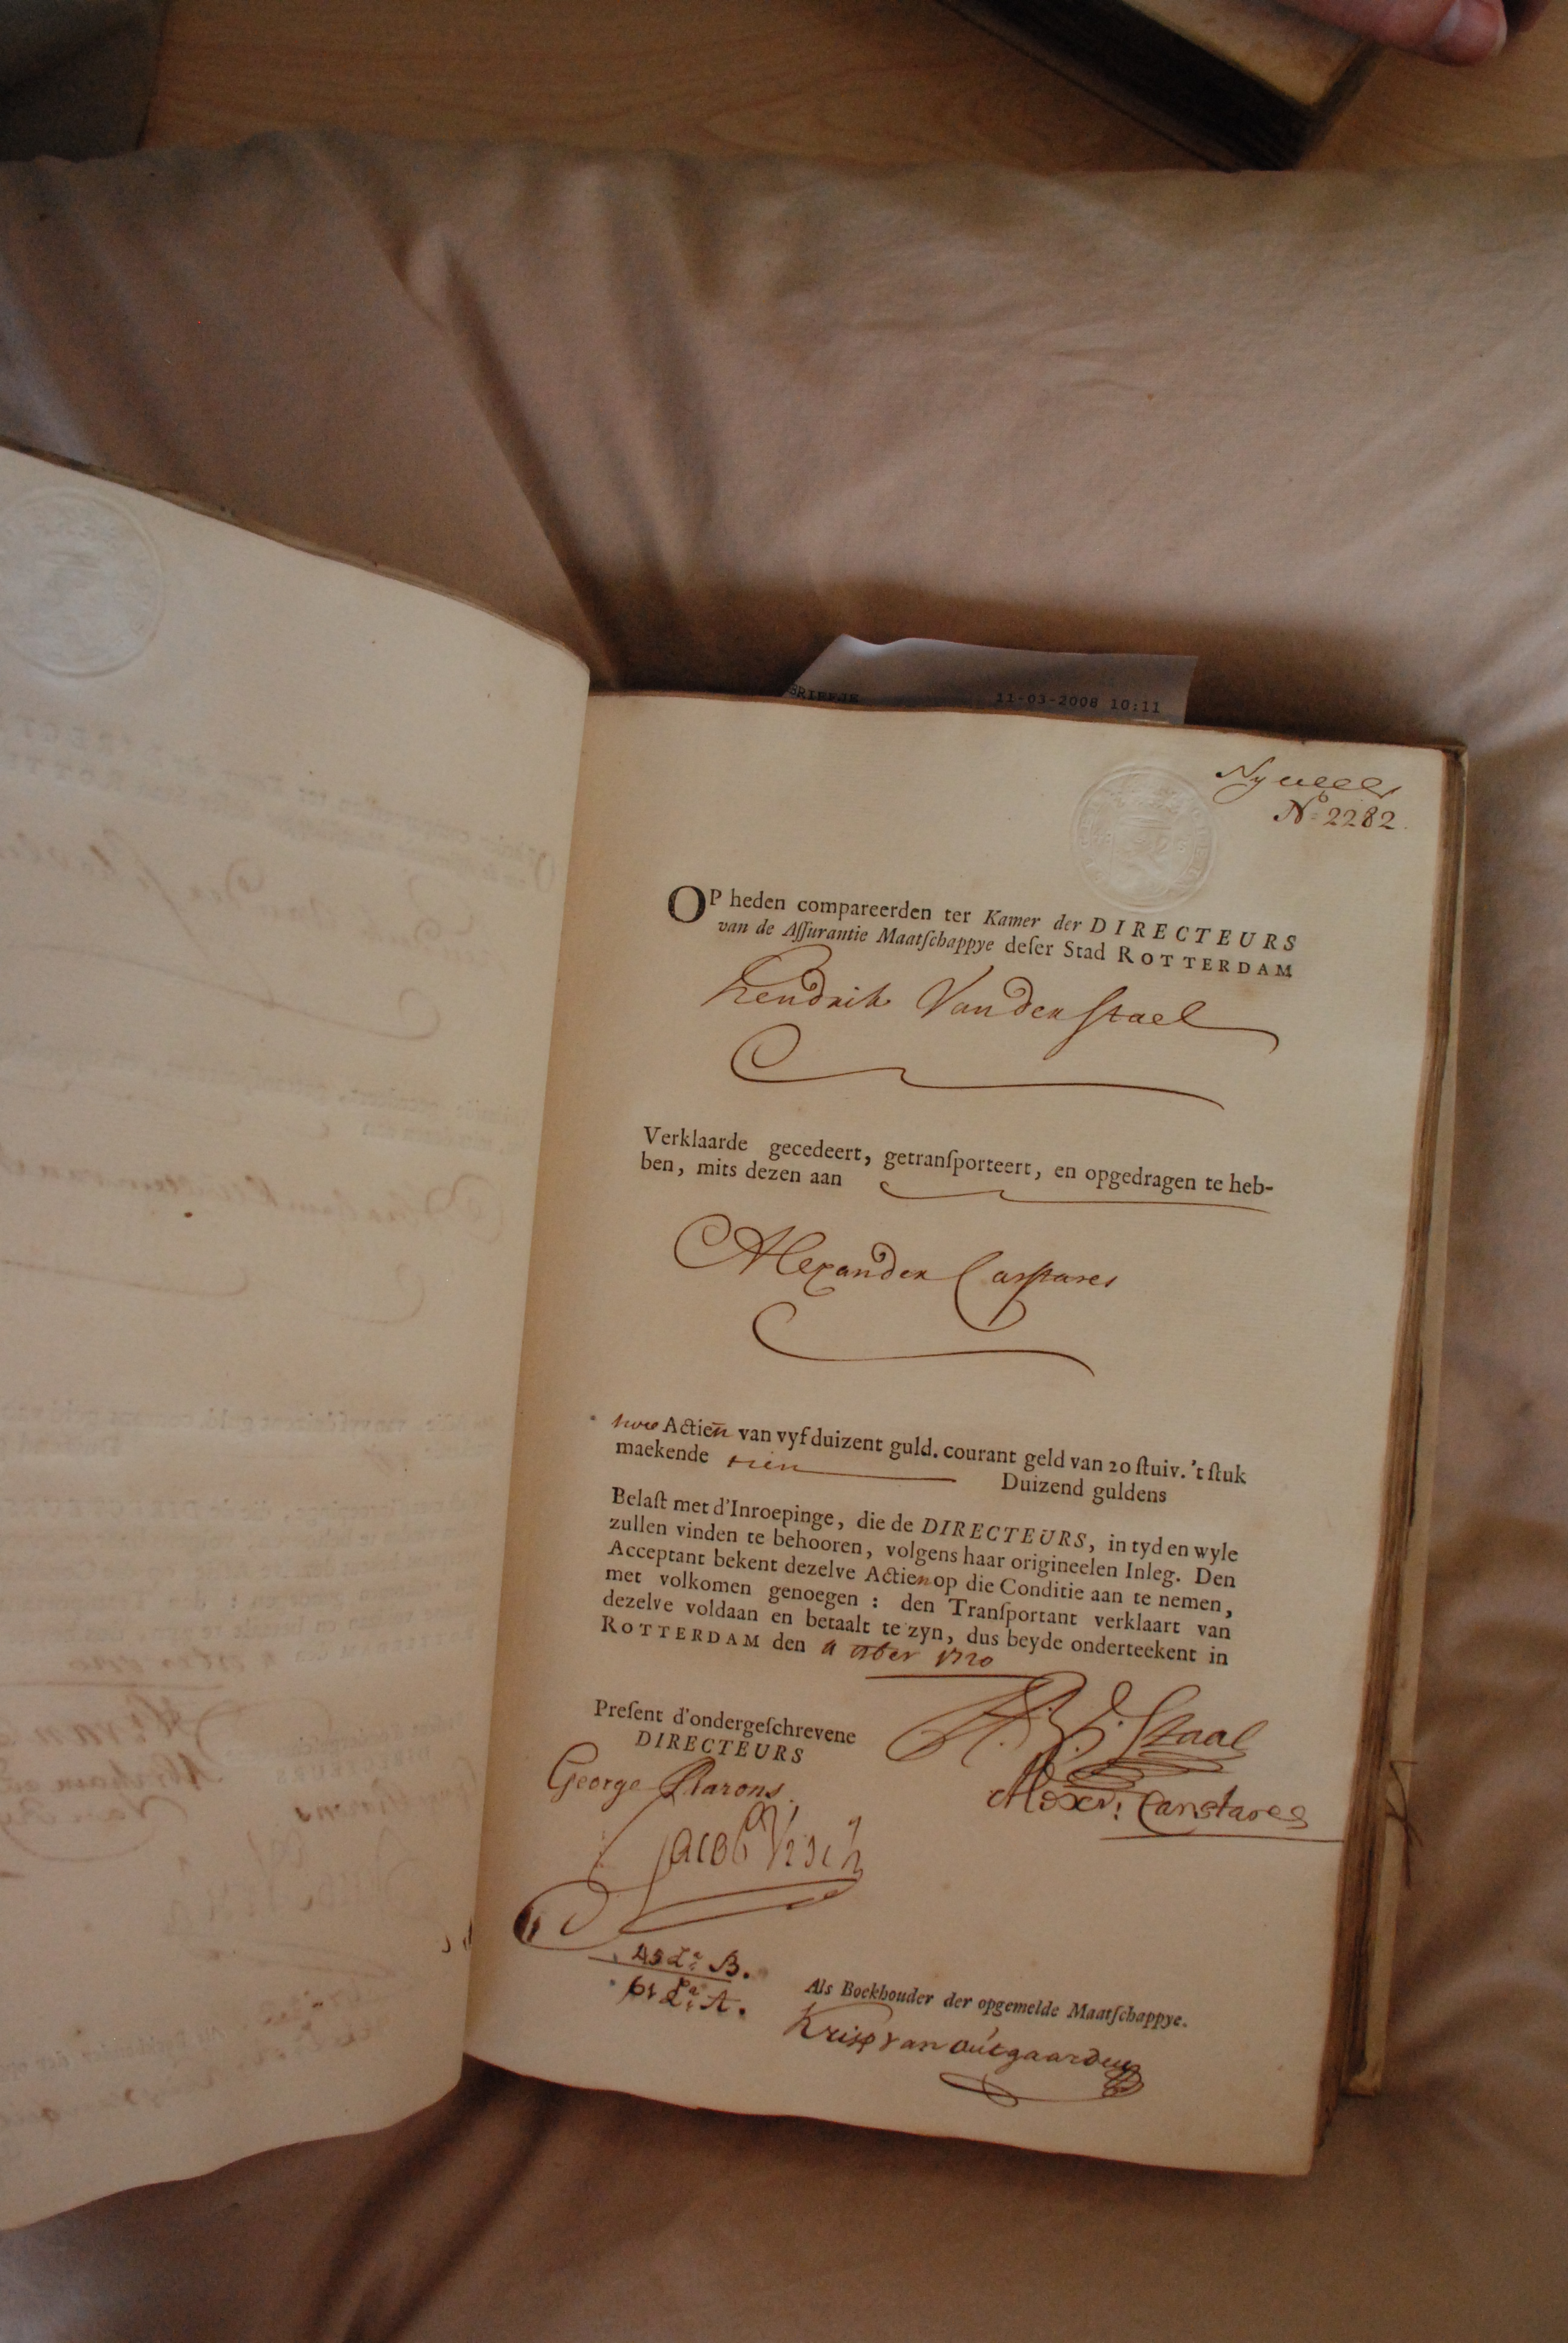 11-03-2008 10:11
No 2282.
OP heden compareerden ter Kamer der DIRECTEURS
van de Aſſurantie Maatſchappye deſer Stad ROTTERDAM
Hendrik Van den Stael
Verklaarde gecedeert, getranſporteert, en opgedragen te heb-
ben, mits dezen aan
Alexander Carstares
twee Actien van vyf duizent guld. courant geld van 20 ſtuiv. 't ſtuk
maekende tien Duizend guldens
Belaſt met d'Inroepinge, die de DIRECTEURS, in tyd en wyle
zullen vinden te behooren, volgens haar origineelen Inleg. Den
Acceptant bekent dezelve Actien op die Conditie aan te nemen,
met volkomen genoegen : den Tranſportant verklaart van
dezelve voldaan en betaalt te zyn, dus beyde onderteekent in
ROTTERDAM den 1720
Preſent d'ondergeſchrevene
DIRECTEURS
Staal
Alexr: Carstares
George Barons.
Jacob Visch
45 La B.
61 La A.
Als Boekhouder der opgemelde Maatſchappye.
van outgaarden